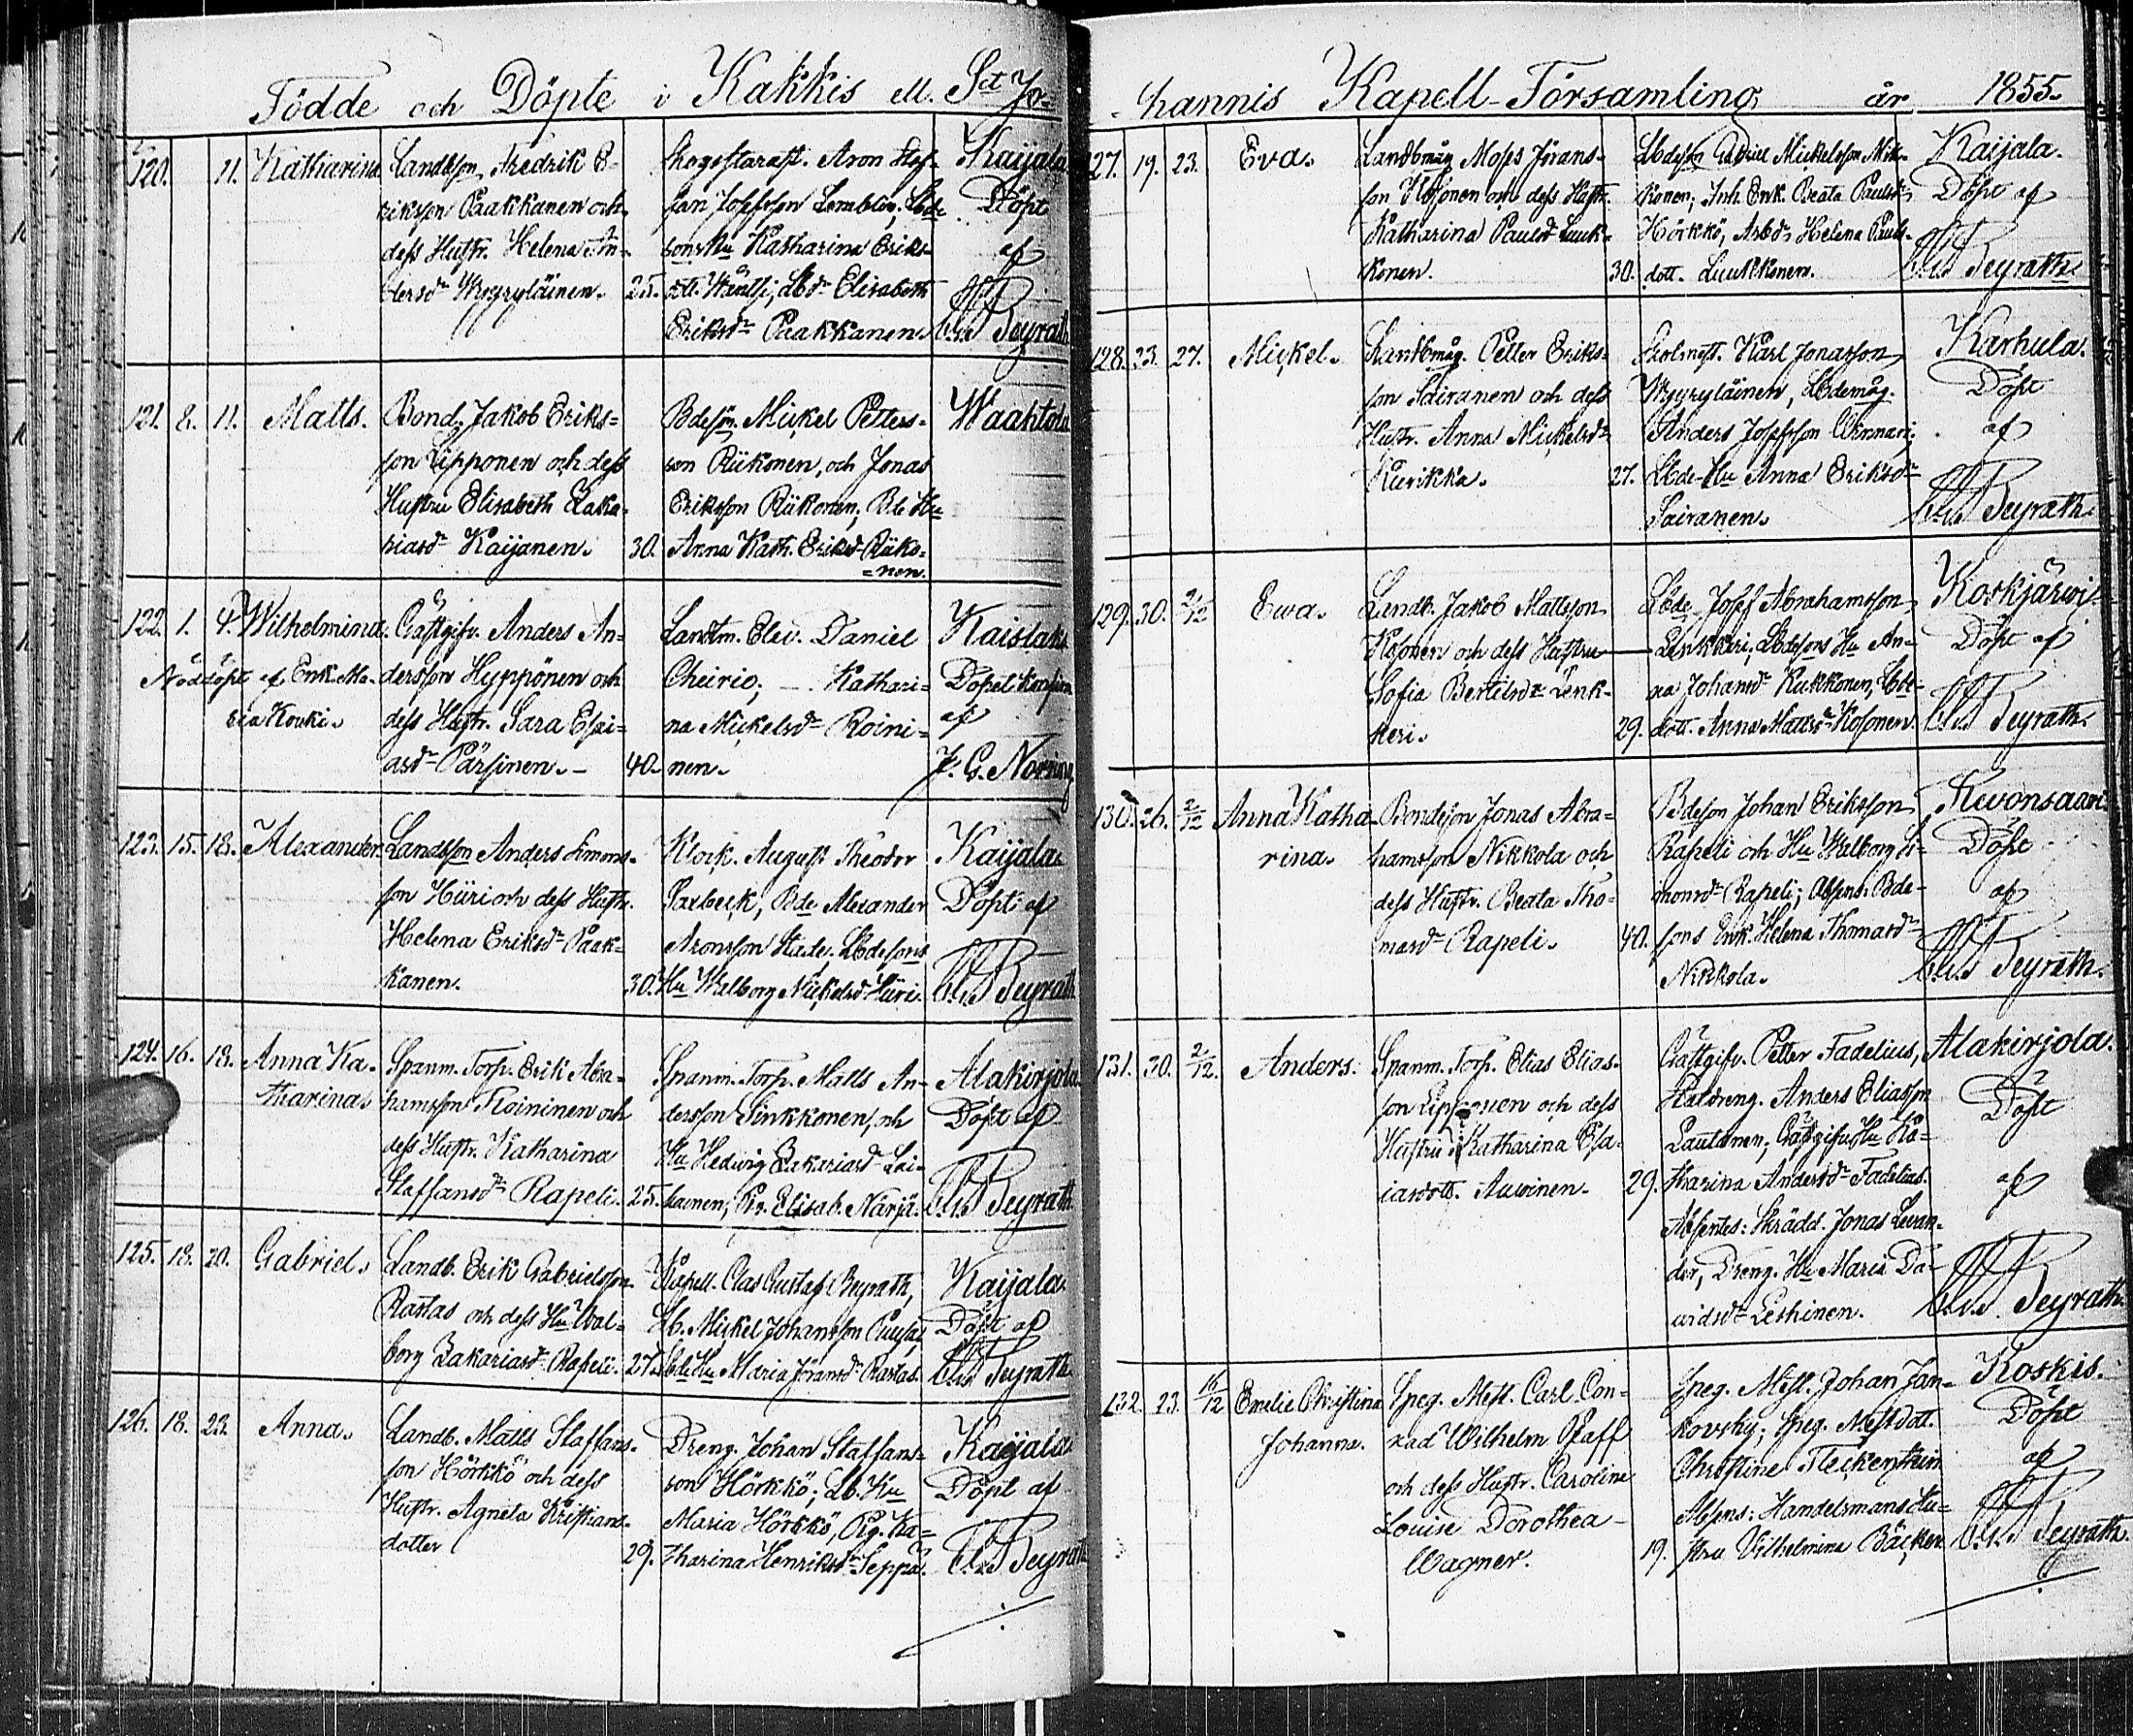 Födde och Döpte i Kakkis ell. Sct Jo-
120. 11. Katharina. Landbson Fredrik E-
riksson Paakkanen och
dess Hustr. Helena An-
dersdr Myyryläinen. 25.
Skogsfarast. Aron
Josefsson
Katharina Eriks-
dtt. Lbdr Elisabeth
Eriksdr Paakkanen.
Kaijala
Döpt
af
C. G. Beyrath
121. 8. 11. Matts. Bond. Jakob Eriks-
son Lipponen och dess
Hustru Elisabeth Zaka-
riasdr Kaijanen. 30.
Bdeson Mickel Petters-
son Riikonen, och Jonas
Eriksson Riikonen; Bde Hu
Anna Kath. Eriksdr Riiko-
=nen.
Waahtola
122. 1. 4. Wilhelmina.
Nöddöpt af Enk. Ma-
ria Kouki.
Gästgifv. Anders An-
dersson Hyppönen och
dess Hustr. Sara Esai-
asdr Pärssinen. 40.
Landtm. Elev. Daniel
Cheirio; Kathari-
na Mickelsdr Roini-
nen.
Kaislaks
Döpel. Konfirm.
af
J. G. Norring
123. 15. 18. Alexander. Landbson Anders Simons-
son Hiiri och dess Hustr.
Helena Eriksdr Paak-
kanen. 30.
Klock. August Theodor
Paxbeck, Bde Alexander
Aronsson Lbdesons
Hu Walborg Mickelsdr Hiiri.
Kaijala
Döpt af
C. G. Beyrath
124. 16. 18. Anna Ka-
tharina.
Spanm. Torp. Erik Abra-
hamsson Roininen och
dess Hustr. Katharina
Staffansdr Rapeli. 25.
Spanm. Torp. Matts An-
dersson Sinkkonen, och
Hu Hedwig Zakariasdr Lai-
kainen; Pig. Elisab. Närjä.
Alakirjola.
Döpt af
C. G. Beyrath.
125. 18. 20. Gabriel. Landb. Erik Gabrielsson
Rastas och dess Hu Wal-
borg Zakariasdr Rapeli. 27.
Kapell. Clas Gustaf Beyrath,
Lb. Mickel Johansson Puysa,
Lbde Hu Maria Jöransdr Rastas.
Kaijala
Döpt af
C. G. Beyrath
126. 18. 23. Anna. Landb. Matts Staffans-
son Hörkkö och dess
Hustr. Agneta Kristians-
dotter 29.
Dreng. Johan Staffans-
son Hörkkö; Lb. Hu
Maria Hörkkö, Pig. Ka-
tharina Henriksdr Seppä.
Kaijala
Döpt af
C. G. Beyrath
hannis Kapell-Församling år 1855.
127. 19. 23. Eva. Landbmåg Moses Jörans-
son Kosonen och dess Hustr.
Katharina Paulsdr Luuk-
konen. 30.
Lbdeson Gabriel Mickelsson Mik-
konen; Inh. Enk. Beata Paulsdr
Hörkkö, Arbdr Helena Pauls-
dott. Luukkonen.
Kaijala.
Döpt af
C. G. Beyrath.
128. 23. 27. Mickel. Landbmåg. Petter Eriks-
son Sairanen och dess
Hustr. Anna Mickelsdr
Kurikka. 27.
Skolmest. Karl Jonasson
Myyryläinen, Lbdemåg.
Anders Josefsson Winnari;
Lbde Hu Anna Eriksdr
Sairanen.
Karhula.
Döpt
af
C. G. Beyrath.
129. 30. 2/12 Ewa. Landb. Jakob Mattsson
Kosonen och dess Hustru
Sofia Bertilsdr Lenk-
keri. 29.
Lbde Josef Abrahamsson
Lenkkeri; Lbdesons Hu An-
na Johansdr Kukkonen, Lbde-
dott. Anna Mattsdr Kosonen.
Koskjärwi.
Döpt af
C. G. Beyrath.
130. 26. 2/12 Anna Katha-
rina.
Bondeson Jonas Abra-
hamsson Nikkola och
dess Hustr. Beata Tho-
masdr Rapeli. 40.
Bdeson Johan Eriksson
Rapeli och Hu Walborg Si-
monsdr Rapeli; Absens: Bde-
sons Enk. Helena Thomasdr
Nikkola.
Kuvonsaari
Döpt
af
C. G. Beyrath.
131. 30. 2/12. Anders. Spanm. Torp. Elias Elias-
son Lipponen och dess
Hustru Katharina Esa-
iasdott. Auvinen. 29.
Gästgifv. Petter Fadelius,
Anders Eliasson
Lautanen; Gästgifv Hu Ka-
tharina Andersdr Fadelius.
Absentes: Skrädd. Jonas Levan-
der, Dreng. Hu Maria Da-
vidsdr Lethinen.
Alakirjola.
Döpt
af
C. G. Beyrath.
132. 23. 16/12 Emelie Christina
Johanna.
Speg. Mest. Carl Con-
rad Wilhelm Pfaff
och dess Hustr. Caroline
Louise Dorothea
Wagner. 19.
Speg. Mest. Johan Jan-
kovsky; Speg. Mest dott.
Christine Fleckenstein
Absens: Handelsmans Hu-
stru Vilhelmina Bäcker
Koskis.
Döpt
af
C. G. Beyrath.